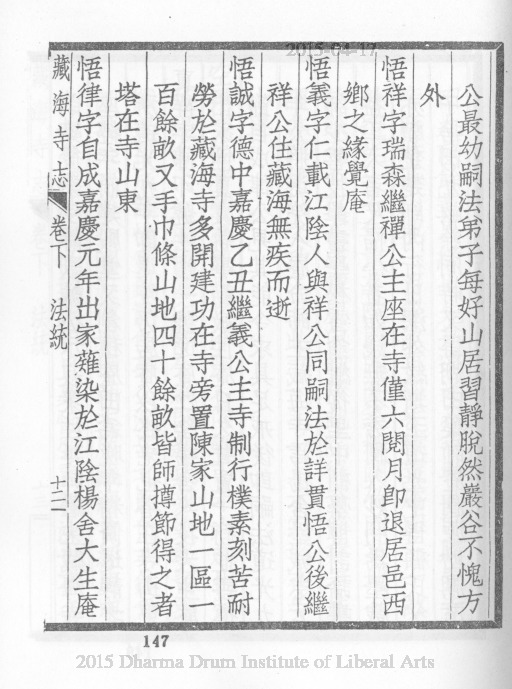 2015-04-17
公最幼嗣法弟子每好山居習靜脫然巖谷不愧方
外
悟祥字瑞森繼禪公主座在寺僅六閱月卽退居邑西
鄉之緣覺庵
悟義字仁載江陰人與祥公同嗣法於詳貫悟公後繼
祥公住藏海無疾而逝
悟誠字德中嘉慶乙丑繼義公主寺制行樸素刻苦耐
勞於藏海寺多開建功在寺旁置陳家山地一區一
百餘畝又手巾條山地四十餘畝皆師撙節得之者
塔在寺山東
悟律字自成嘉慶元年出家薙染於江陰楊舍大生庵
藏海寺志 卷下 法統 十二
147
2015 Dharma Drum Institute of Liberal Arts